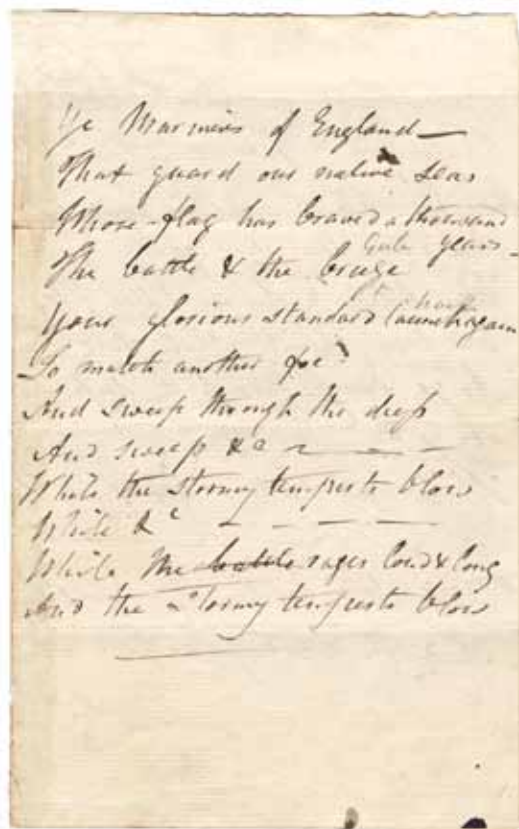 Ye Mariners of England—
That guard our native seas
Whose flag has braved a thousand years—
The battle & the breeze
Your glorious standard launch again
To match another foe
And sweep through the deep
And sweep &c - - - -
While the stormy tempests blow
While &c - - - - -
While the battle rages loud & long
And the stormy tempests blow